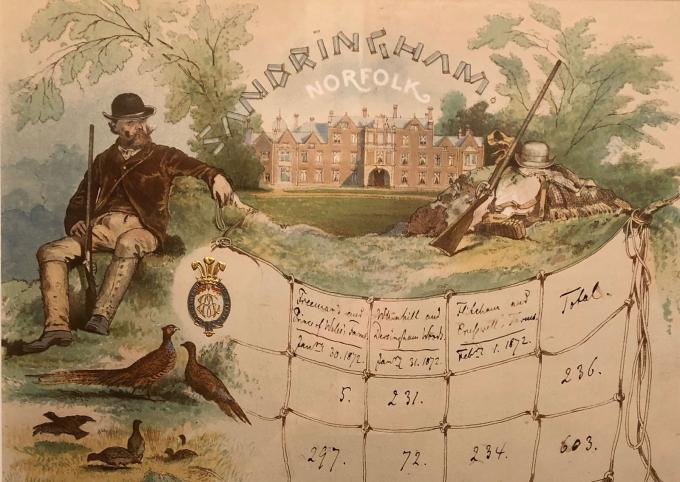 SANDRINGHAM.
NORFOLK
Freemans and
Prince of Wales's Farms
Jany. 30. 1872.
Wolverhill and
Dersingham Woods.
Jany. 31. 1872.
Flitcham and
Farms.
Feby. 1. 1872.
Total.
5. 231. 236.
297. 72. 234. 603.